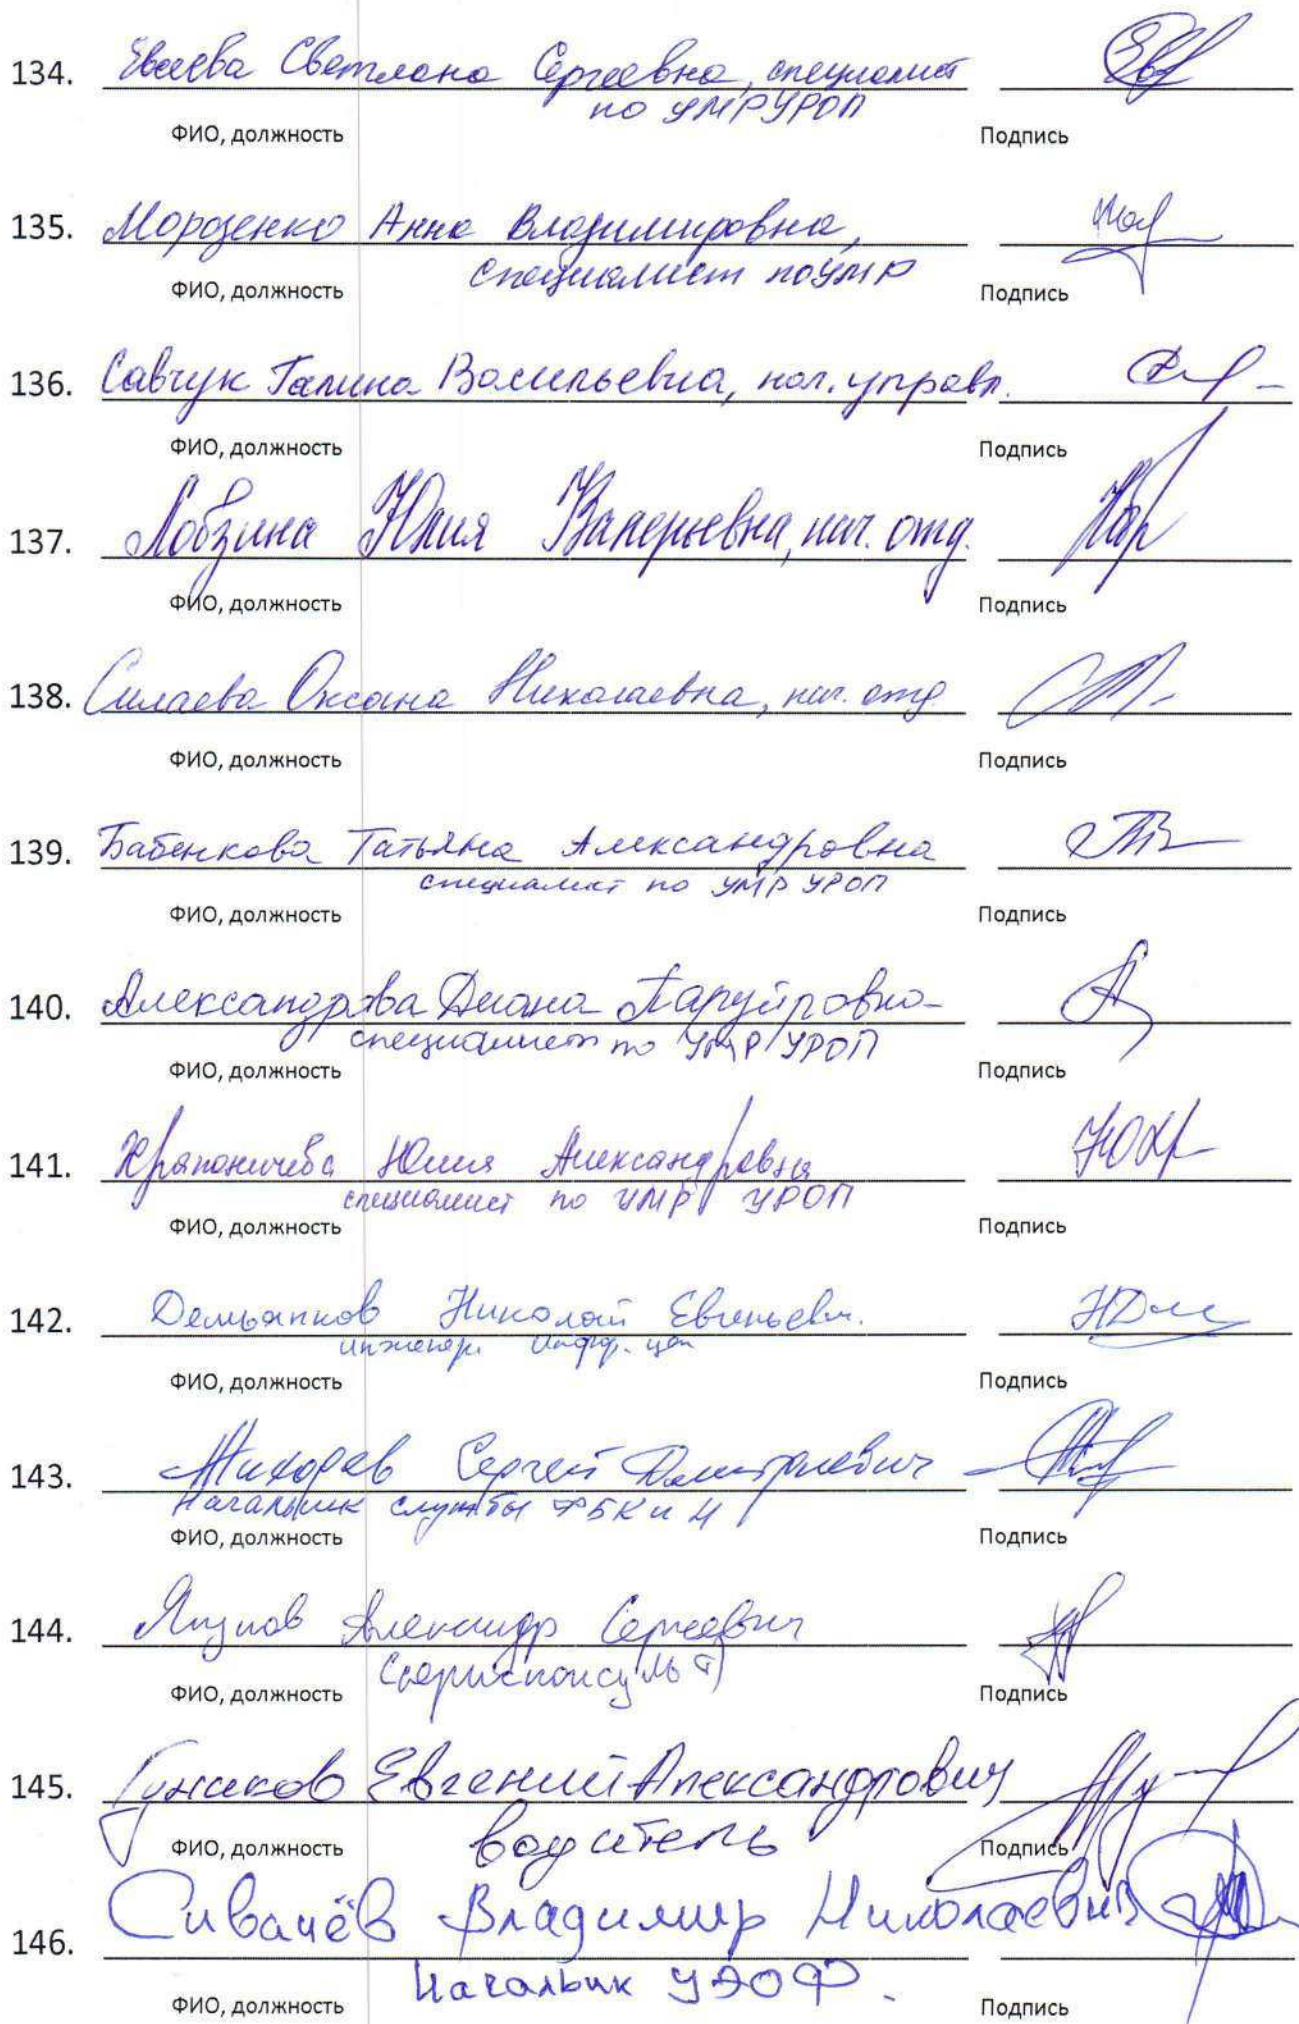 134. Евсеева Светлана Сергеевна, специалист
по УМР УРОП
ФИО, должность Подпись
135. Морозенко Анна Владимировна,
специалист по УМР
ФИО, должность Подпись
136. Савчук Галина Васильевна, нач. управл.
ФИО, должность Подпись
137. Лобзина Юлия Валерьевна, нач. отд.
ФИО, должность Подпись
138. Силаева Оксана Николаевна, нач. отд.
ФИО, должность Подпись
139. Бабенкова Татьяна Александровна
специалист по УМР УРОП
ФИО, должность Подпись
140. Александрова Диана Паруйровна
специалист по УМР УРОП
ФИО, должность Подпись
141. Юлия Александровна
специалист по УМР УРОП
ФИО, должность Подпись
142. Демьянков Николай Евгеньевич.
инженер
ФИО, должность Подпись
143. Жихорев Сергей Дмитриевич
Начальник службы
ФИО, должность Подпись
144. Александр Сергеевич
ФИО, должность Подпись
145. Евгений Александрович
водитель
ФИО, должность Подпись
146. Сивачёв Владимир Николаевич
Начальник УЭОФ.
ФИО, должность Подпись